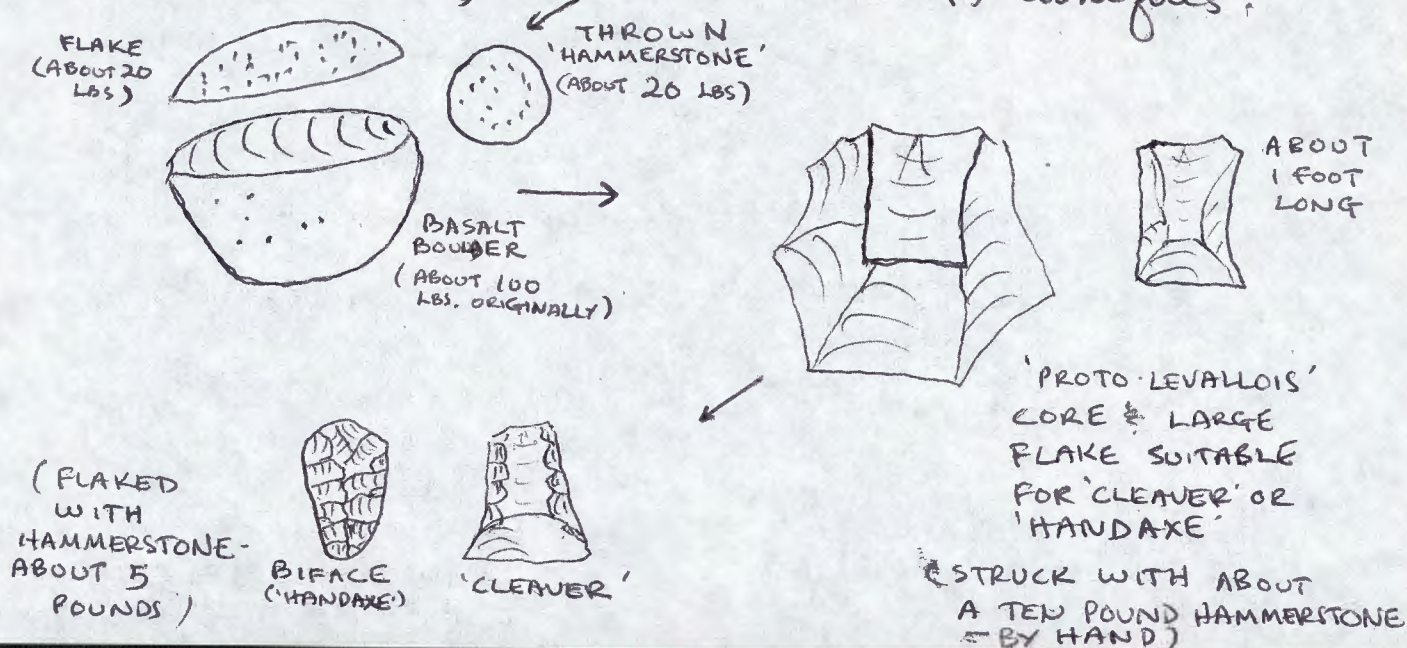 techniques.
FLAKE
(ABOUT 20
LBS)
THROWN
'HAMMERSTONE'
(ABOUT 20 LBS)
BASALT
BOULDER
(ABOUT 100
LBS. ORIGINALLY)
ABOUT
1 FOOT
LONG
'PROTO-LEVALLOIS'
CORE & LARGE
FLAKE SUITABLE
FOR 'CLEAVER' OR
'HANDAXE'
(STRUCK WITH ABOUT
A TEN POUND HAMMERSTONE
- BY HAND)
(FLAKED
WITH
HAMMERSTONE-
ABOUT 5
POUNDS)
BIFACE
('HANDAXE')
'CLEAVER'